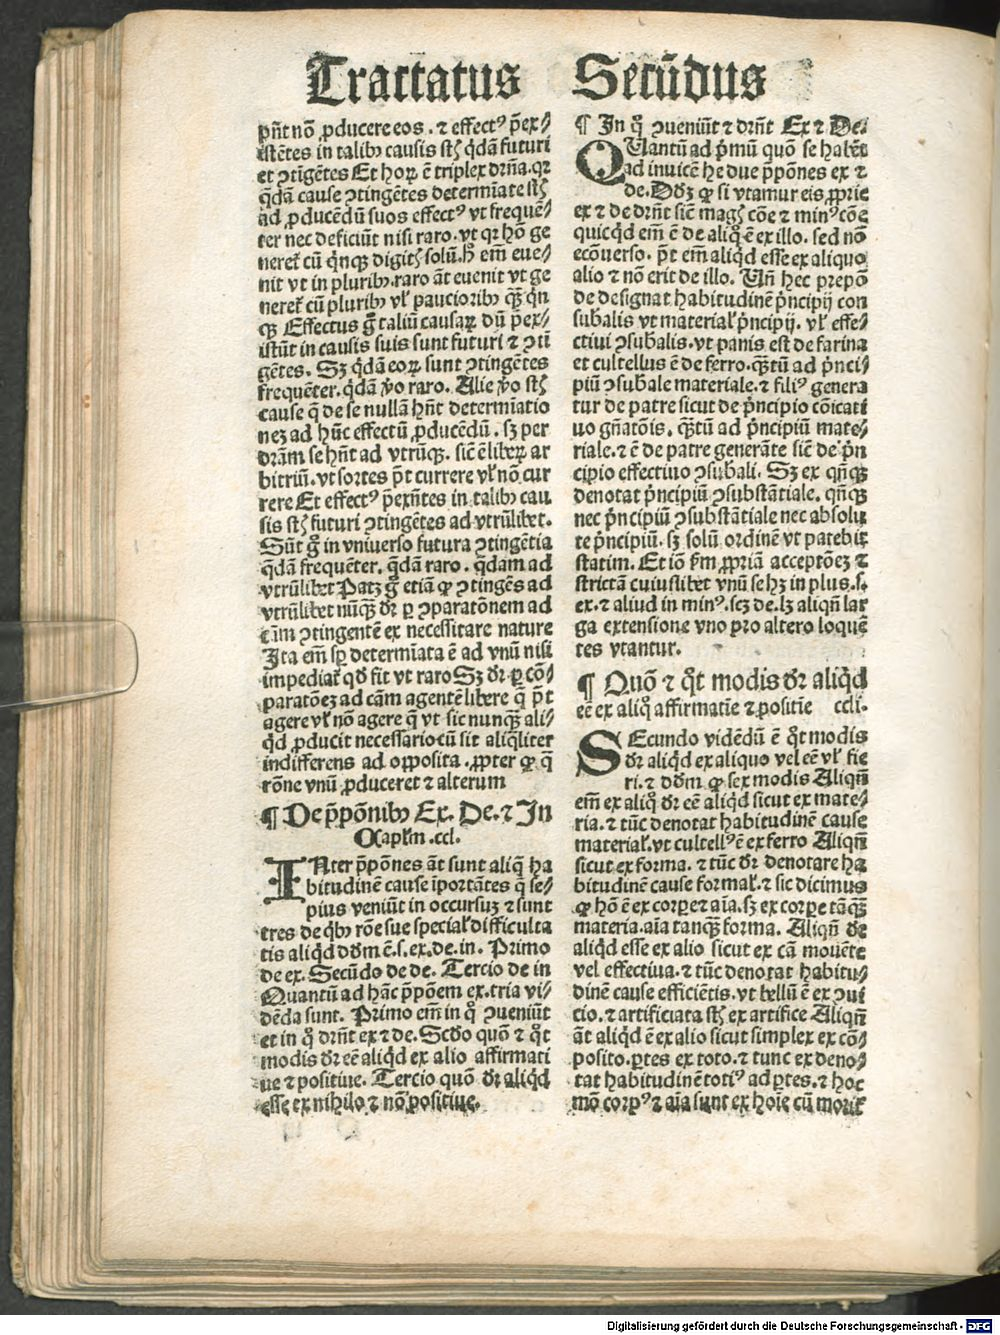 Tractatus Secūdus
pñt nō ꝓducere eos. ⁊ effectꝰ p̄ex⸗
istētes in talibꝫ causis st̄ꝫ q̇dā futuri
et ↄtīgētes Et horꝝ ē triplex dr̄na. qꝛ
q̇dā cause ↄtingētes determīate st̄ꝫ
ad ꝓducēdū suos effectꝰ vt frequē⸗
ter nec deficiūt nisi raro. vt qꝛ hō ge
neret̄ cū q̇nqꝫ digitꝭ solū. h̄ em̄ eue⸗
nit vt in pluribꝫ. raro āt euenit vt ge
neret̄ cū pluribꝫ vl̓ paucioribꝫ qꝫ̄ q̇n
qꝫ Effectus g̊ taliū causarꝝ dū p̄ex⸗
istūt in causis suis sunt futuri ⁊ ↄtī
gētes. Sꝫ q̇dā eorꝝ sunt ↄtingētes
frequēter. q̇dā v̊o raro. Alie v̊o st̄ꝫ
cause q̄ de se nullā hn̄t determīatio
neꝫ ad hūc effectū ꝓducēdū. sꝫ per
dr̄am se hn̄t ad vtrūqꝫ. sic̄ ē liberꝝ ar
bitriū. vt sortes p̄t currere vl̓ nō cur
rere Et effectꝰ p̄exn̄tes in talibꝫ cau
sis st̄ꝫ futuri ↄtingētes ad vtrūlibet.
Sūt g̊ in vniuerso futura ↄtingētia
q̇dā frequēter. q̇dā raro. q̇dam ad
vtrūlibet Patꝫ g̊ etiā ꝙ ↄtingēs ad
vtrūlibet nūqꝫ̄ dr̄ ꝑ ↄparatōnem ad
cām ↄtingentē ex necessitate nature
Ita em̄ sp̄ determīata ē ad vnū nisi
impediat̄ qd̓ fit vt raro Sꝫ dr̄ ꝑ cō⸗
paratōeꝫ ad cām agentē libere q̄ p̄t
agere vl̓ nō agere q̄ vt sic nunqꝫ̄ ali⸗
q̇d ꝓducit necessario cū sit aliq̇liter
indifferens ad opposita. ꝓpter ꝙ q̄
rōne vnū ꝓduceret ⁊ alterum
¶ De p̄pōnibꝫ Ex. De. ⁊ In
Caplm̄ .ccl.
INter p̄pōnes āt sunt aliq̄ ha
bitudinē cause īportātes q̄ se⸗
pius veniūt in occursuꝫ ⁊ sunt
tres de q̇bꝫ rōe sue special̓ difficulta
tis aliq̇d dd̓m ē. s. ex. de. in. Primo
de ex. Secūdo de de. Tercio de in
Quantū ad hāc p̄pōem ex. tria vi⸗
dēda sunt. Primo em̄ in q̊ ↄueniūt
et in q̊ drn̄t ex ⁊ de. Scd̓o quō ⁊ q̊t
modis dr̄ eē aliq̇d ex alio affirmati
ue ⁊ positiue. Tercio quō dr̄ aliq̇d
esse ex nihilo ⁊ nō positiue.
¶ In q̊ ↄueniūt ⁊ drn̄t Ex ⁊ De.
QUantū ad p̓mū quō se habēt
ad inuicē he due p̄pōnes ex ⁊
de. Dd̓ꝫ ꝙ si vtamur eis ꝓprie
ex ⁊ de drn̄t sic̄ magꝭ cōe ⁊ minꝰ cōe
quicq̇d em̄ ē de aliq̊ ē ex illo. sed nō
ecōuerso. p̄t em̄ aliq̇d esse ex aliquo
alio ⁊ nō erit de illo. Un̄ hec prepō
de designat habitudinē p̓ncipij con
sub̄alis vt material̓ p̓ncipij. vl̓ effe⸗
ctiui ↄsub̄alis. vt panis est de farina
et cultellus ē de ferro. qꝫ̄tū ad p̓nci⸗
piū ↄsub̄ale materiale. ⁊ filiꝰ genera
tur de patre sicut de p̓ncipio cōicati
uo gn̄atōis. qꝫ̄tū ad p̓ncipiū mate⸗
riale. ⁊ ē de patre generāte sic̄ de p̓n
cipio effectiuo ↄsub̄ali. Sꝫ ex qn̄qꝫ
denotat p̓ncipiū ↄsubstātiale. qn̄qꝫ
nec p̓ncipiū ↄsubstātiale nec absolu
te p̓ncipiū. sꝫ solū ordinē vt patebit
statim. Et iō s̄m ꝓpriā acceptōeꝫ ⁊
strictā cuiuslibet vnū se hꝫ in plus. s.
ex. ⁊ aliud in minꝰ. scꝫ de. lꝫ aliqn̄ lar
ga extensione vno pro altero loquē
tes vtantur.
¶ Quō ⁊ q̊t modis dr̄ aliq̇d
eē ex aliq̊ affirmatīe ⁊ positīe ccli.
SEcundo vidēdū ē q̊t modis
dr̄ aliq̇d ex aliquo vel eē vl̓ fie
ri. ⁊ dd̓m ꝙ sex modis Aliqn̄
em̄ ex aliq̊ dr̄ eē aliq̇d sicut ex mate⸗
ria. ⁊ tūc denotat habitudinē cause
material̓. vt cultellꝰ ē ex ferro Aliqn̄
sicut ex forma. ⁊ tūc dr̄ denotare ha
bitudinē cause formal̓. ⁊ sic dicimus
ꝙ hō ē ex corpe ⁊ aīa. sꝫ ex corpe tāqꝫ̄
materia. aīa tanqꝫ̄ forma. Aliqn̄ dr̄
aliq̇d esse ex alio sicut ex cā mouēte
vel effectiua. ⁊ tūc denotat habitu⸗
dinē cause efficiētis. vt bellū ē ex ↄui
cio. ⁊ artificiata st̄ꝫ ex artifice Aliqn̄
āt aliq̇d ē ex alio sicut simplex ex cō⸗
posito. ꝑtes ex toto. ⁊ tunc ex deno⸗
tat habitudinē totiꝰ ad ꝑtes. ⁊ hoc
mō corpꝰ ⁊ aīa sunt ex hoīe cū morit̄
Digitalisierung gefördert durch die Deutsche Forschungsgemeinschaft - DFG